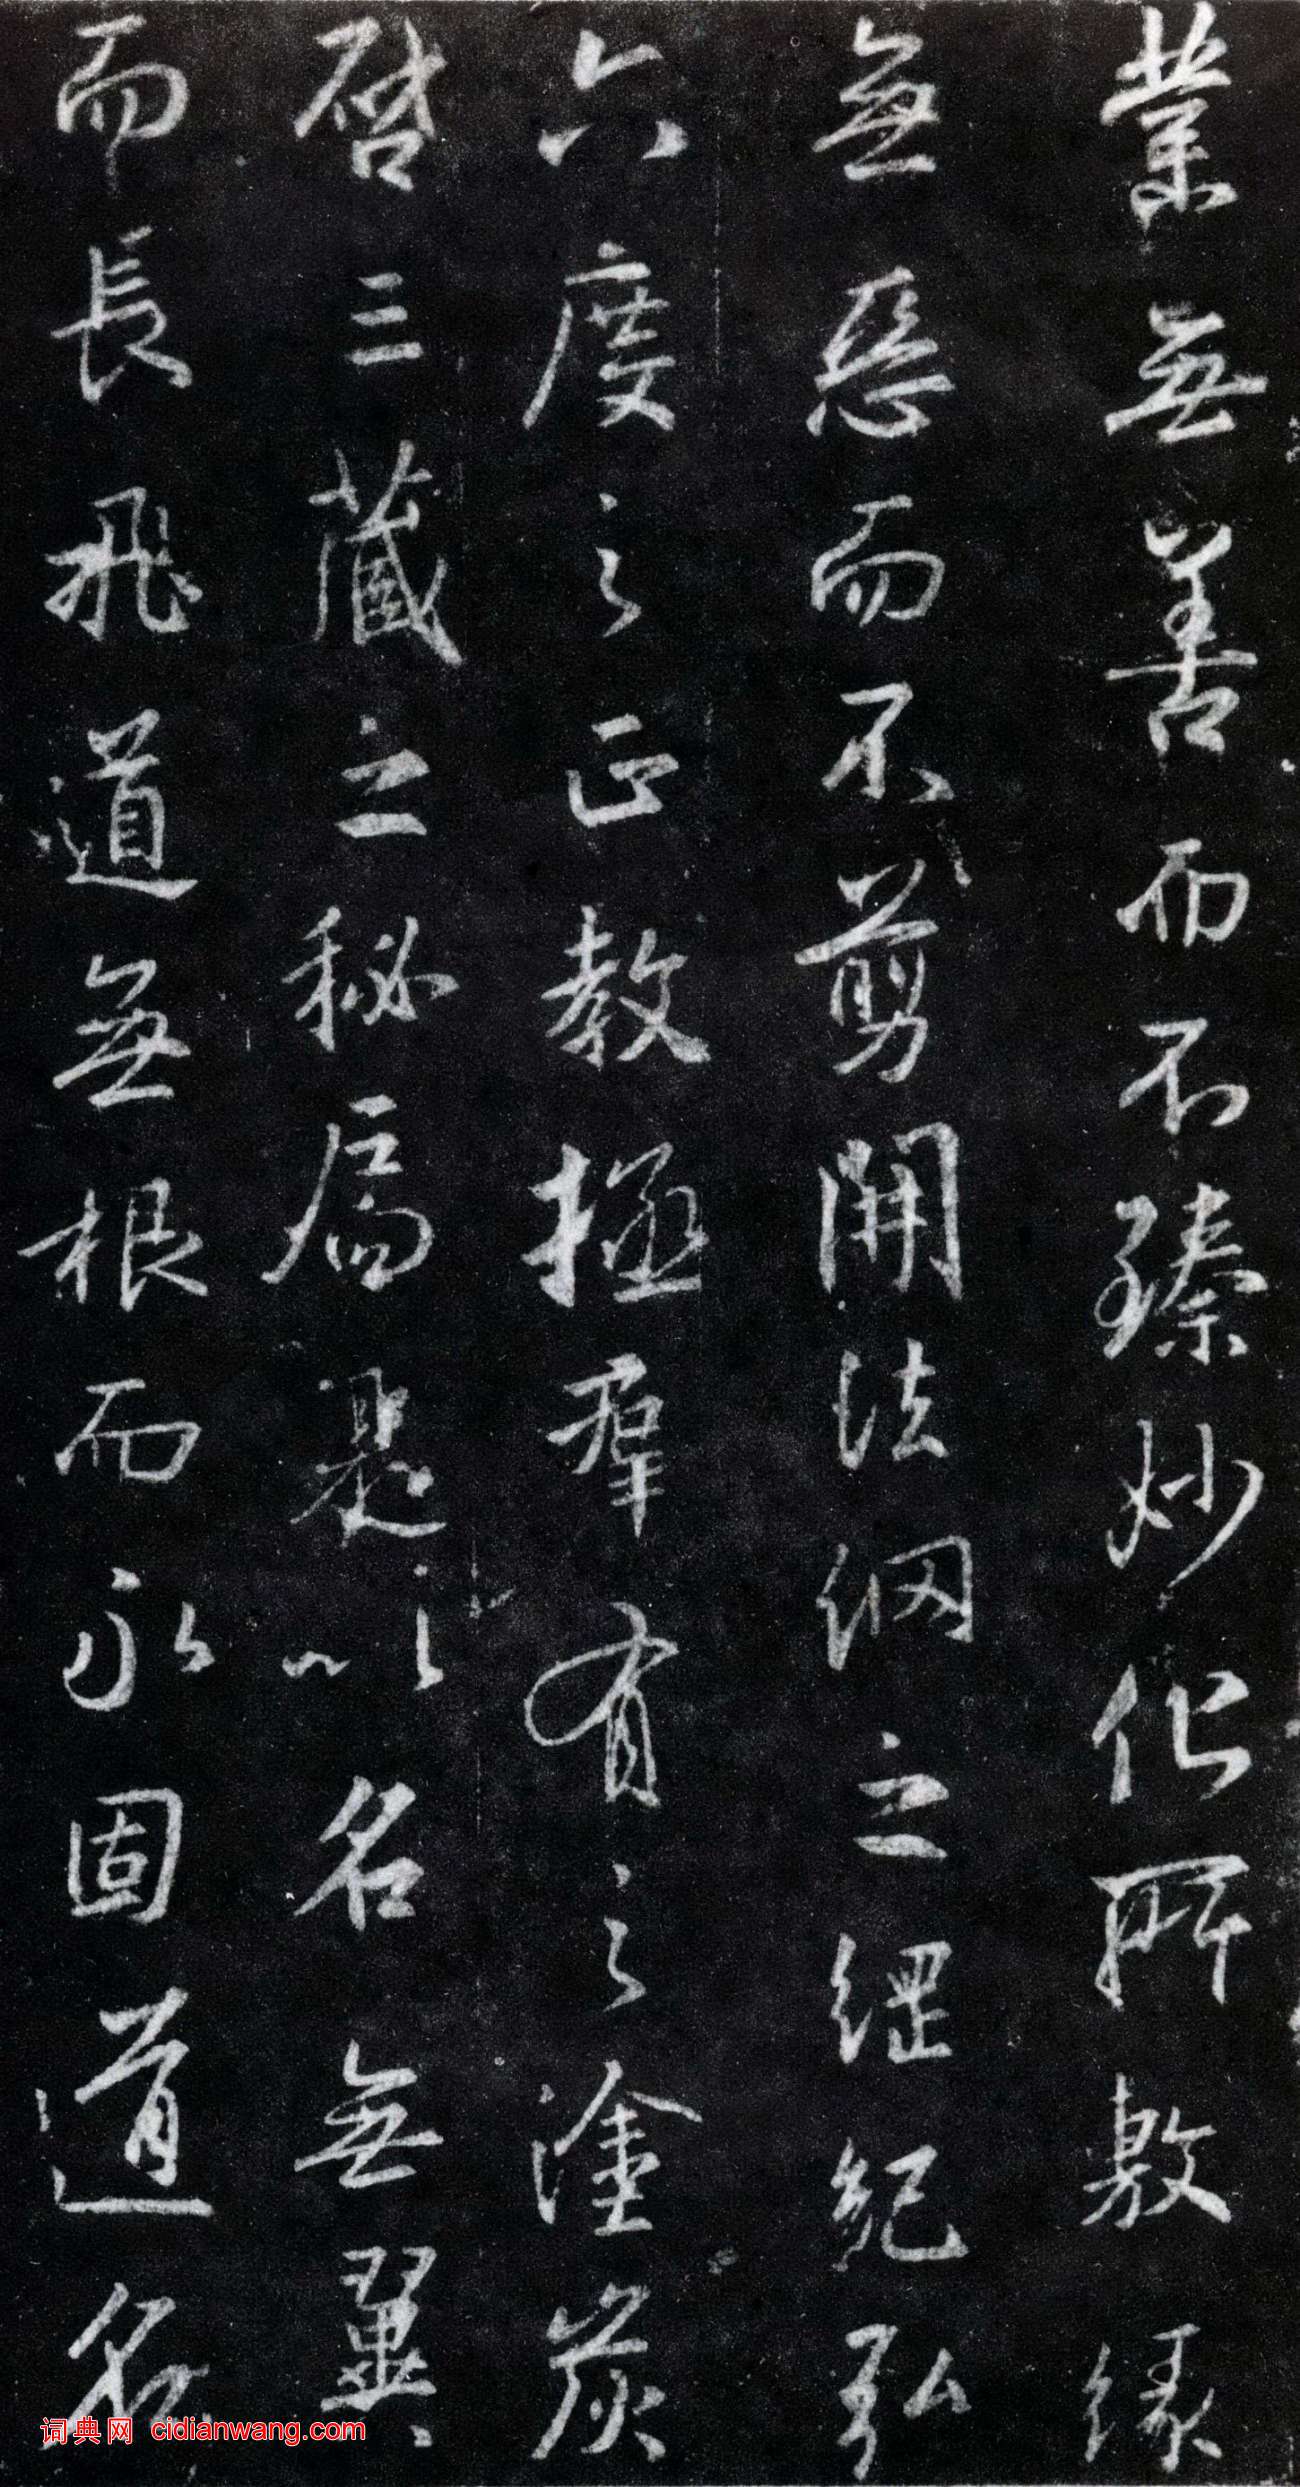 業無善而不臻妙化所敷緣
無惡而不剪開法網之綱紀弘
六度之正教拯群有之塗炭
啓三藏之秘扃是以名無翼
而長飛道無根而永固道名
词典网 cidianwang.com